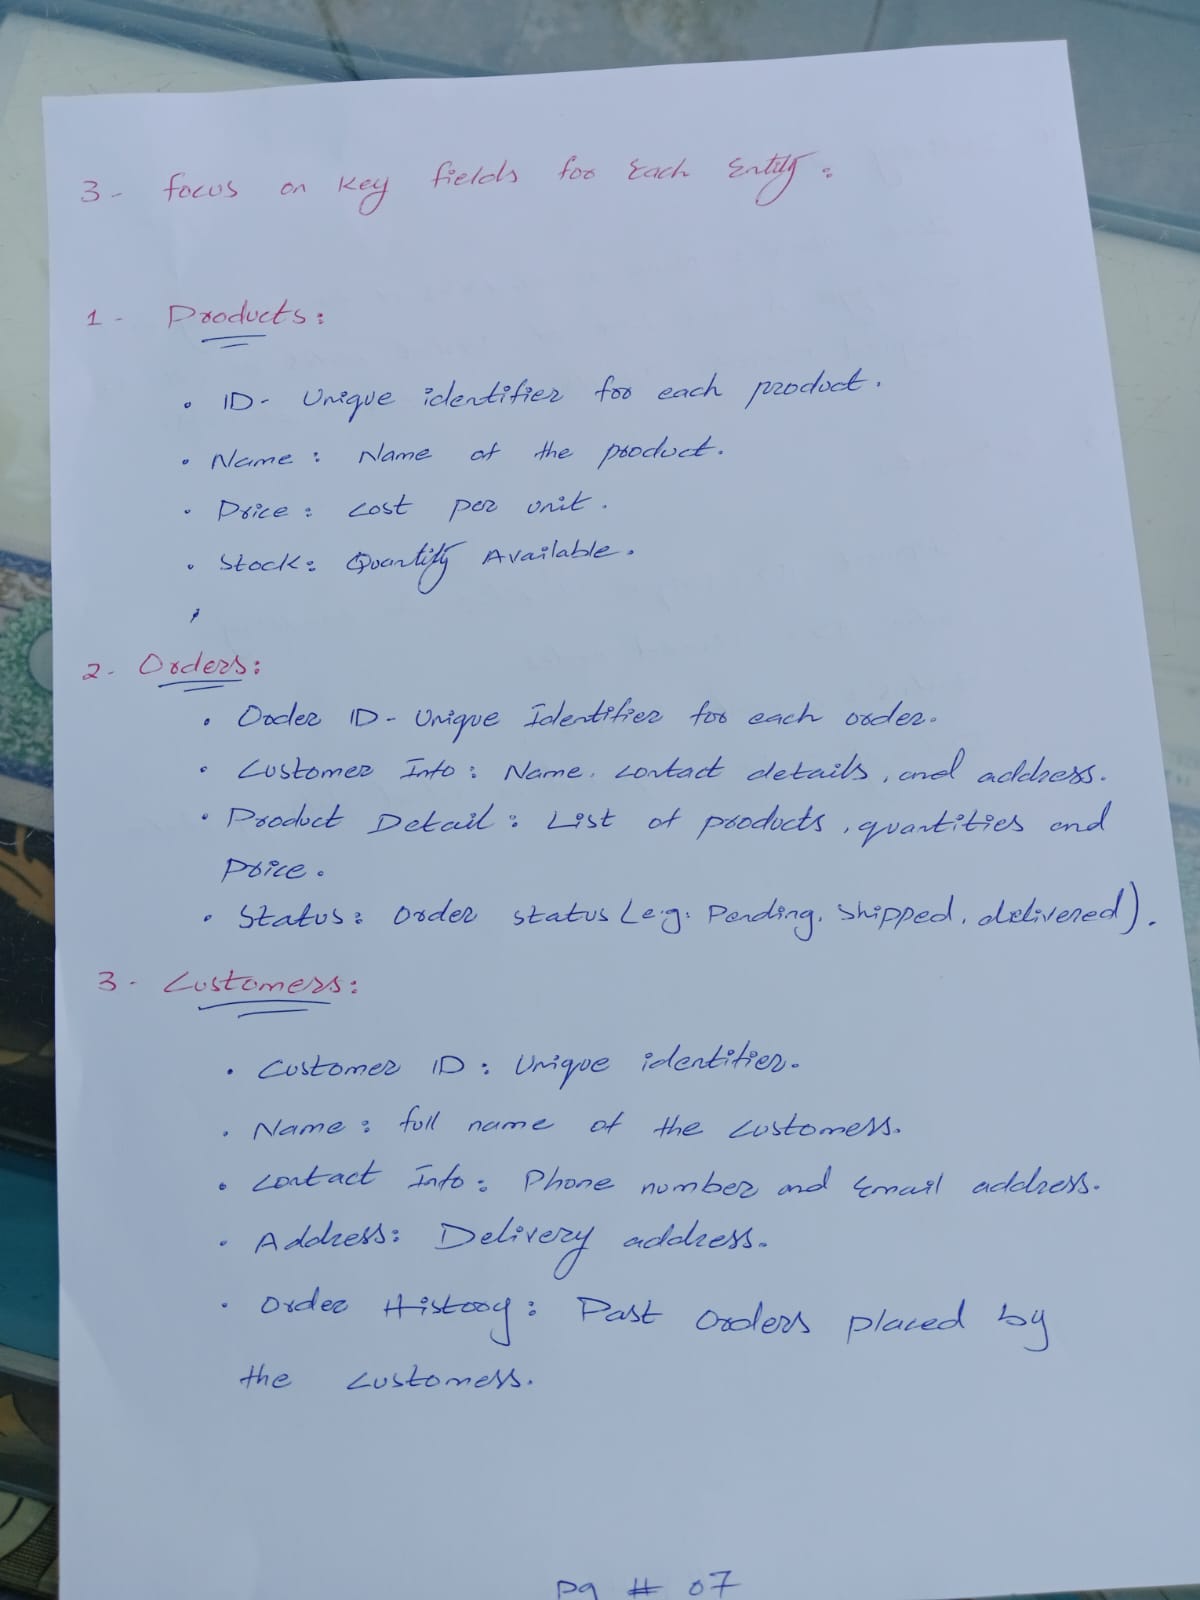 3- focus on key fields for Each Entity:
1- Products:
• ID- Unique identifier for each product.
• Name: Name of the product.
• Price: cost per unit.
• Stock: Quantity Available.
2- Orders:
• Order ID- Unique Identifier for each order.
• Customer Info: Name, contact details, and address.
• Product Detail: List of products, quantities and
Price.
• Status: Order status (e.g: Pending, Shipped, delivered).
3- Customers:
• Customer ID: Unique identifier.
• Name: full name of the customers.
• Contact Info: Phone number and Email address.
• Address: Delivery address.
• Order History: Past Orders placed by
the customers.
pg # 07